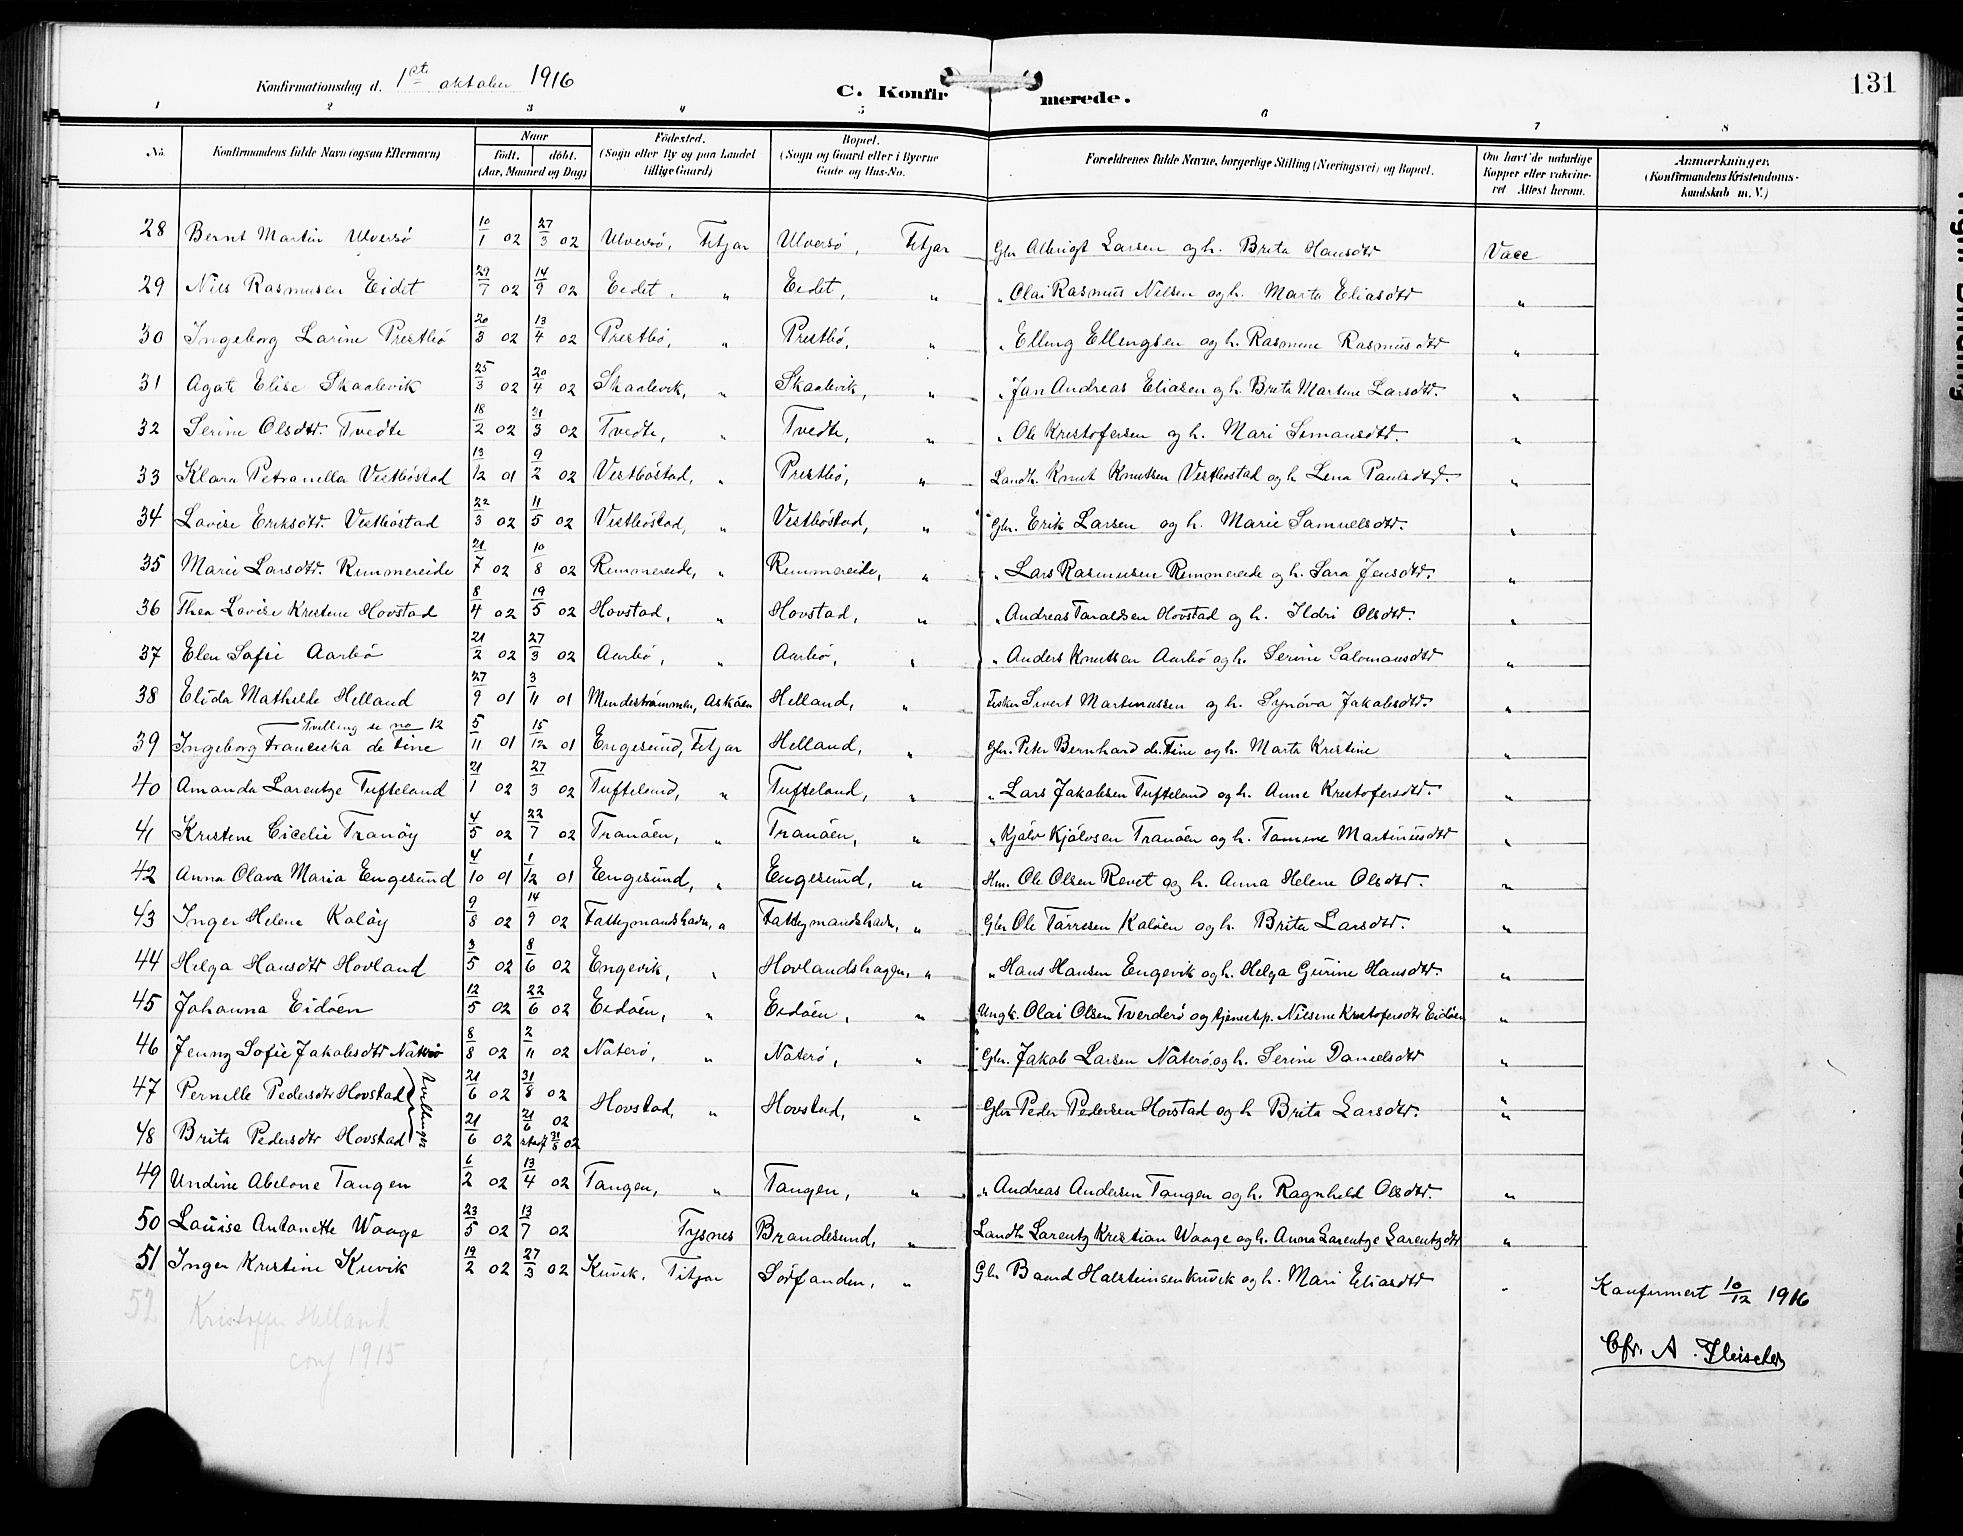 Konfirmationsdag d. 1ste oktober 1916
C. Konfirmerede.
131
1 2 3 4 5 6 7 8
No. Konfirmandens fulde Navn (ogsaa Efternavn) Naar födt. döbt. (Aar, Maaned og Dag) Födested. (Sogn eller By og paa Landet tillige Gaard) Bopæl. (Sogn og Gaard eller i Byerne Gade og Hus-No. Forældrenes fulde Navne, borgerlige Stilling (Næringsvei) og Bopæl. Om havt de naturlige Kopper eller vakcineret. Attest herom. Anmerkninger, (Konfirmandens Kristendomskundskab m. V.)
28 Bernt Martin Ulversö 10/1 02 27/3 02 Ulversö, Fitjar Ulversö, Fitjar Gbr Albrigt Larsen og h. Brita Hansdtr Vacc
29 Nils Rasmusen Eidet 29/7 02 14/9 02 Eidet, " Eidet, " " Olai Rasmus Nilsen og h. Marta Eliasdtr "
30 Ingeborg Larine Prestbö 20/3 02 13/4 02 Prestbö, " Prestbö, " " Elling Ellingsen og h. Rasmine Rasmusdtr "
31 Agat Elise Skaalevik 25/3 02 20/4 02 Skaalevik, " Skaalevik, " " Jan Andreas Eliasen og h. Brita Martine Larsdtr. "
32 Serine Olsdtr. Tvedte 18/2 02 31/3 02 Tvedte, " Tvedte, " " Ole Kristofersen og h. Mari Simansdtr. "
33 Klara Petranella Vestböstad 13/12 01 9/2 02 Vestböstad, " Prestbö, " Landh. Knut Knutsen Vestbostad og h Lena Paulsdtr. "
34 Lovise Eriksdtr. Vestböstad 22/3 02 11/5 02 Vestböstad, " Vestböstad, " Gbr. Erik Larsen og h. Marie Samuelsdtr. "
35 Marie Larsdtr. Rimmereide 21/7 02 10/8 02 Rimmereide, " Rimmereide, " " Lars Rasmusen Rimmereide og h. Sara Jensdtr. "
36 Thea Lovise Kristine Hovstad 8/4 02 19/5 02 Hovstad, " Hovstad, " " Andreas Taraldsen Hovstad og h. Ildri Olsdtr. "
37 Elen Sofie Aarbö 21/2 02 27/3 02 Aarbö, " Aarbö, " " Anders Knutsen Aarbö og h. Serine Salomansdtr "
38 Elida Mathilde Helland 27/9 01 3/11 01 Mindeströmmen, Asköen Helland, " Fisker Sivert Martinussen og h. Synöva Jakobsdtr. "
Tvilling se no 12
39 Ingeborg Franciska de Fine 5/11 01 15/12 01 Engesund, Fitjar Helland, " Gbr. Peter Bernhard de Fine og h. Marta Kristine "
40 Amanda Larentze Tufteland 21/1 02 27/3 02 Tufteland, " Tufteland, " " Lars Jakobsen Tufteland og h. Anne Kristofersdtr. "
41 Kristine Cicelie Tranöy 4/5 02 22/7 02 Tranöen, " Tranöen, " " Kjölv Kjölvsen Tranöen og h. Tamine Martinusdtr "
42 Anna Olava Maria Engesund 4/10 01 1/12 01 Engesund, " Engesund, " Hm. Ole Olsen Revet og h. Anna Helene Olsdtr. "
43 Inger Helene Kalöy 9/8 02 14/9 02 Fattigmandshavn, " Fattigmandshavn, " Gbr Ole Törresen Kalöen og h. Brita Larsdtr. "
44 Helga Hansdtr Hovland 3/5 02 8/6 02 Engevik, " Hovlandshagen, " " Hans Hansen Engevik og h. Helga Gurine Hansdtr. "
45 Johanna Eidöen 12/5 02 22/6 02 Eidöen, " Eidöen, " Ungk. Olai Olsen Tverderö og tjenestep. Nilsine Kristofersdtr Eidöen "
46 Jenny Sofie Jakobsdtr Naterö 8/8 02 2/11 02 Naterö, " Naterö, " Gbr. Jakob Larsen Naterö og h. Serine Danielsdtr "
47 Pernille Pedersdtr Hovstad 21/6 02 31/8 02 Hovstad, " Hovstad, " Gbr Peder Pedersen Hovstad og h Brita Larsdtr. "
Tvillinger
48 Brita Pedersdtr Hovstad 21/6 02 21/6 02 stadf 31/8 02 "
49 Undine Abelone Tangen 6/2 02 13/4 02 Tangen, " Tangen, " " Andreas Andersen Tangen og h. Ragnhild Olsdtr. "
50 Louise Antonette Waage 23/5 02 13/7 02 Tysnes Brandesund, " Landh Larentz Kristian Waage og h. Anna Larentze Larentzdtr "
51 Inger Kristine Kuvik 19/2 02 27/3 02 Kuvik, Fitjar Sörfanden, " Gbr Baard Halsteinsen Kuvik og h. Mari Eliasdtr " Konfirmert 10/12 1916
52 Kristoffer Helland
conf 1915
Cfr. A. Fleischer